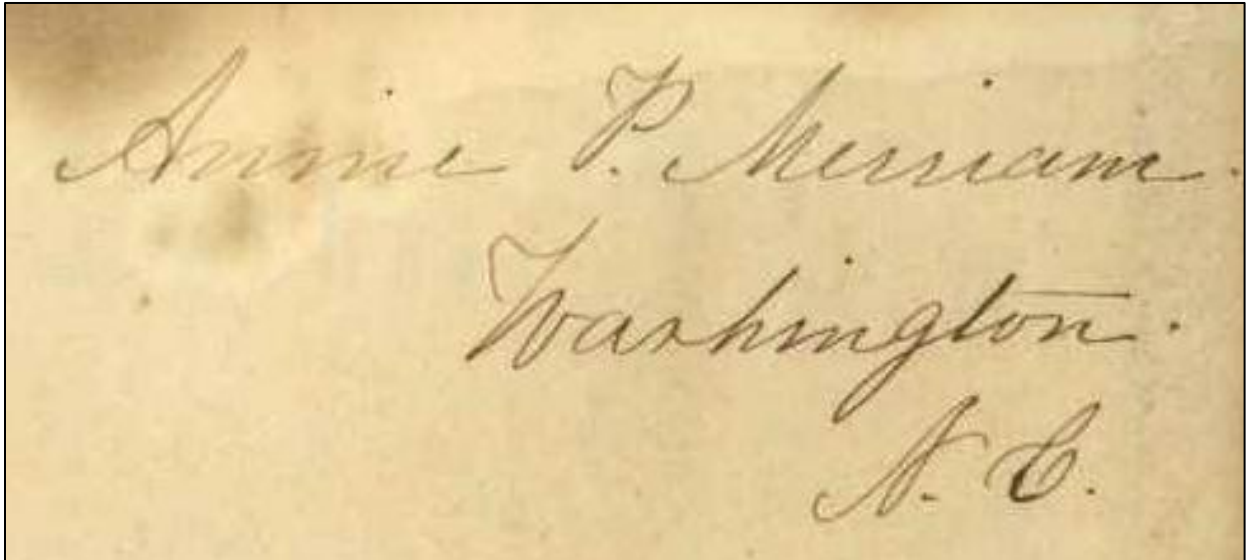 Annie P. Merriam.
Washington.
N. C.